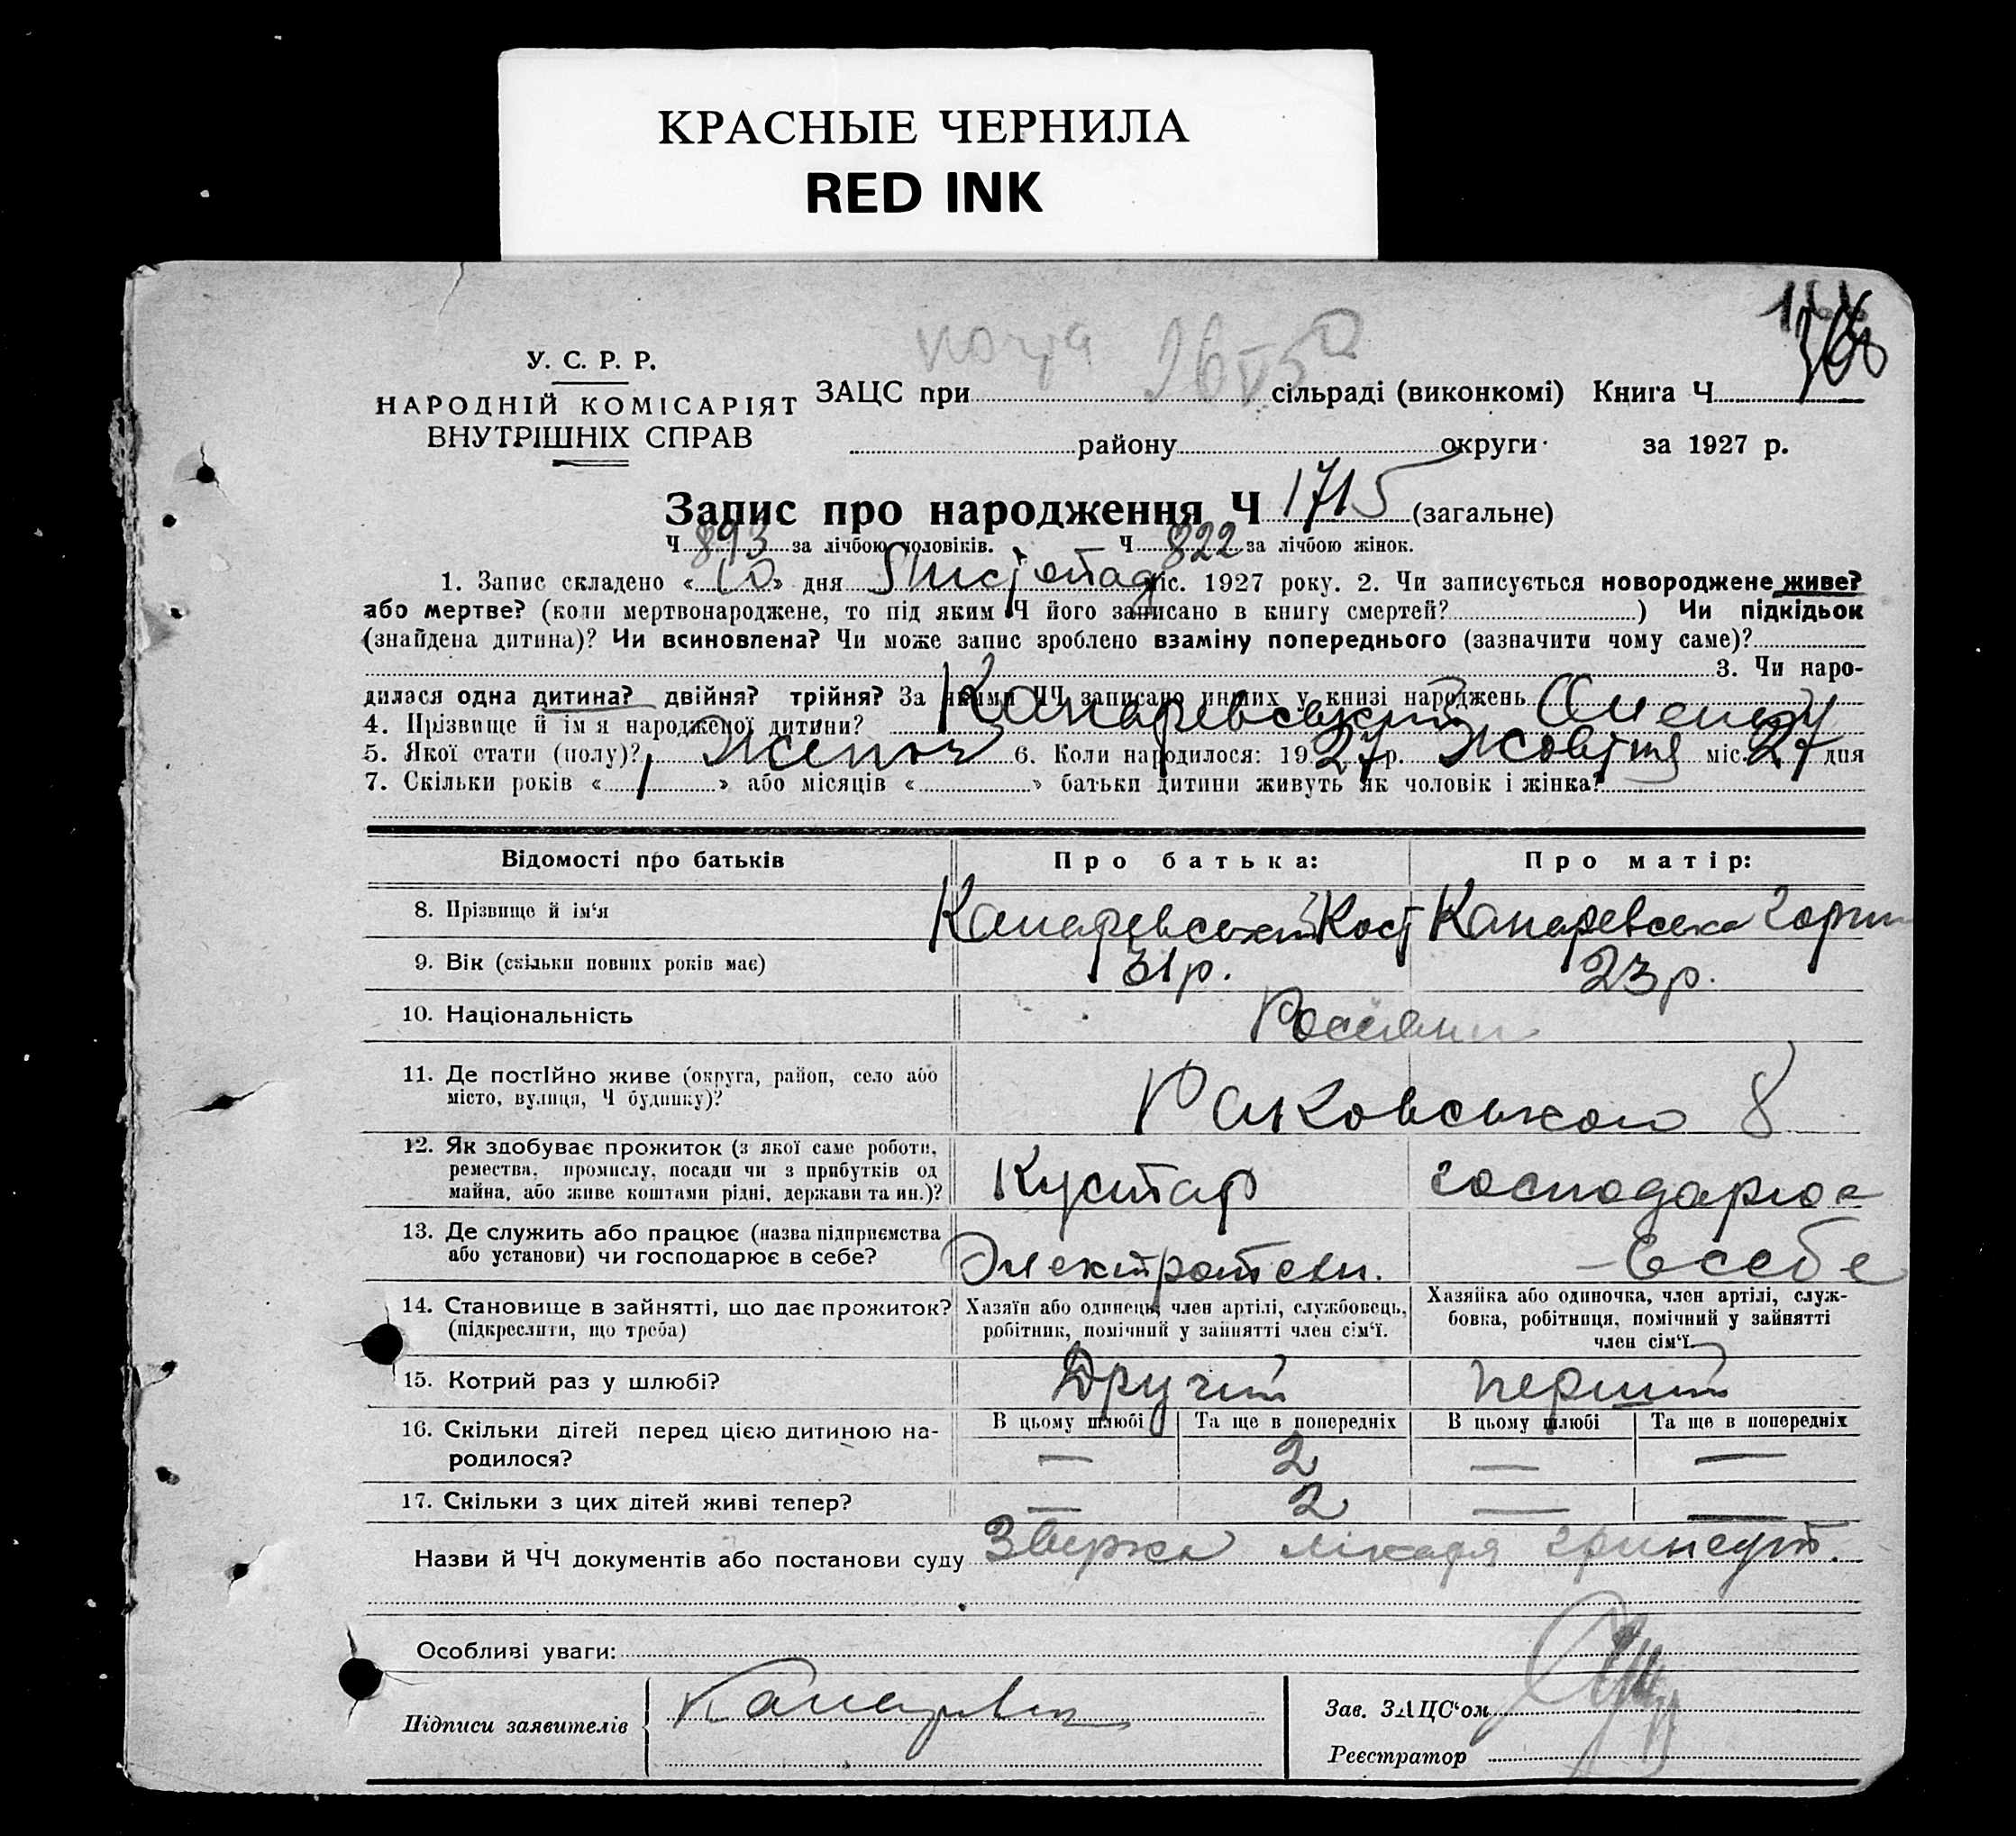 КРАСНЫЕ ЧЕРНИЛА
RED INK
копія 26 V 50
166
У. С. Р. Р.
НАРОДНІЙ КОМІСАРІЯТ
ВНУТРІШНІХ СПРАВ
ЗАЦС при сільраді (виконкомі) Книга Ч
району округи за 1927 р.
Запис про народження Ч 1715 (загальне)
Ч 893 за лічбою чоловіків. Ч 822 за лічбою жінок.
1. Запис складено « 10 » дня Листопад міс. 1927 року. 2. Чи записується новороджене живе?
або мертве? (коли мертвонароджене, то під яким Ч його записано в книгу смертей? ) Чи підкідьок
(знайдена дитина)? Чи всиновлена? Чи може запис зроблено взаміну попереднього (зазначити чому саме)?
3. Чи наро-
дилася одна дитина? двійня? трійня? За якими ЧЧ записано инших у книзі народжень
4. Прізвище й ім'я народженої дитини? Канаревський
5. Якої стати (полу)? Жіноч 6. Коли народилося: 1927 р. Жовтня міс. 27 дня
7. Скільки років « 1 » або місяців « » батьки дитини живуть як чоловік і жінка?
Відомості про батьків Про батька: Про матір:
8. Прізвище й ім'я Канаревський Кост Канаревська
9. Вік (скільки повних років має) 31 р. 23 р.
10. Національність Росіяни
11. Де постійно живе (округа, район, село або
місто, вулиця, Ч будинку)? Раковського 8
12. Як здобуває прожиток (з якої саме роботи,
ремества, промислу, посади чи з прибутків од
майна, або живе коштами рідні, держави та ин.)? Кустар господарює
13. Де служить або працює (назва підприємства
або установи) чи господарює в себе? в себе
14. Становище в зайнятті, що дає прожиток?
(підкреслити, що треба)
Хазяїн або одинець, член артілі, службовець,
робітник, помічний у зайнятті член сім'ї.
Хазяйка або одиночка, член артілі, служ-
бовка, робітниця, помічний у зайнятті
член сім'ї.
15. Котрий раз у шлюбі? Другий перший
16. Скільки дітей перед цією дитиною на-
родилося?
В цьому шлюбі Та ще в попередніх В цьому шлюбі Та ще в попередніх
— 2 — —
17. Скільки з цих дітей живі тепер? — 2 — —
Назви й ЧЧ документів або постанови суду лікаря
Особливі уваги:
Підписи заявителів
Зав. ЗАЦС'ом
Реєстратор